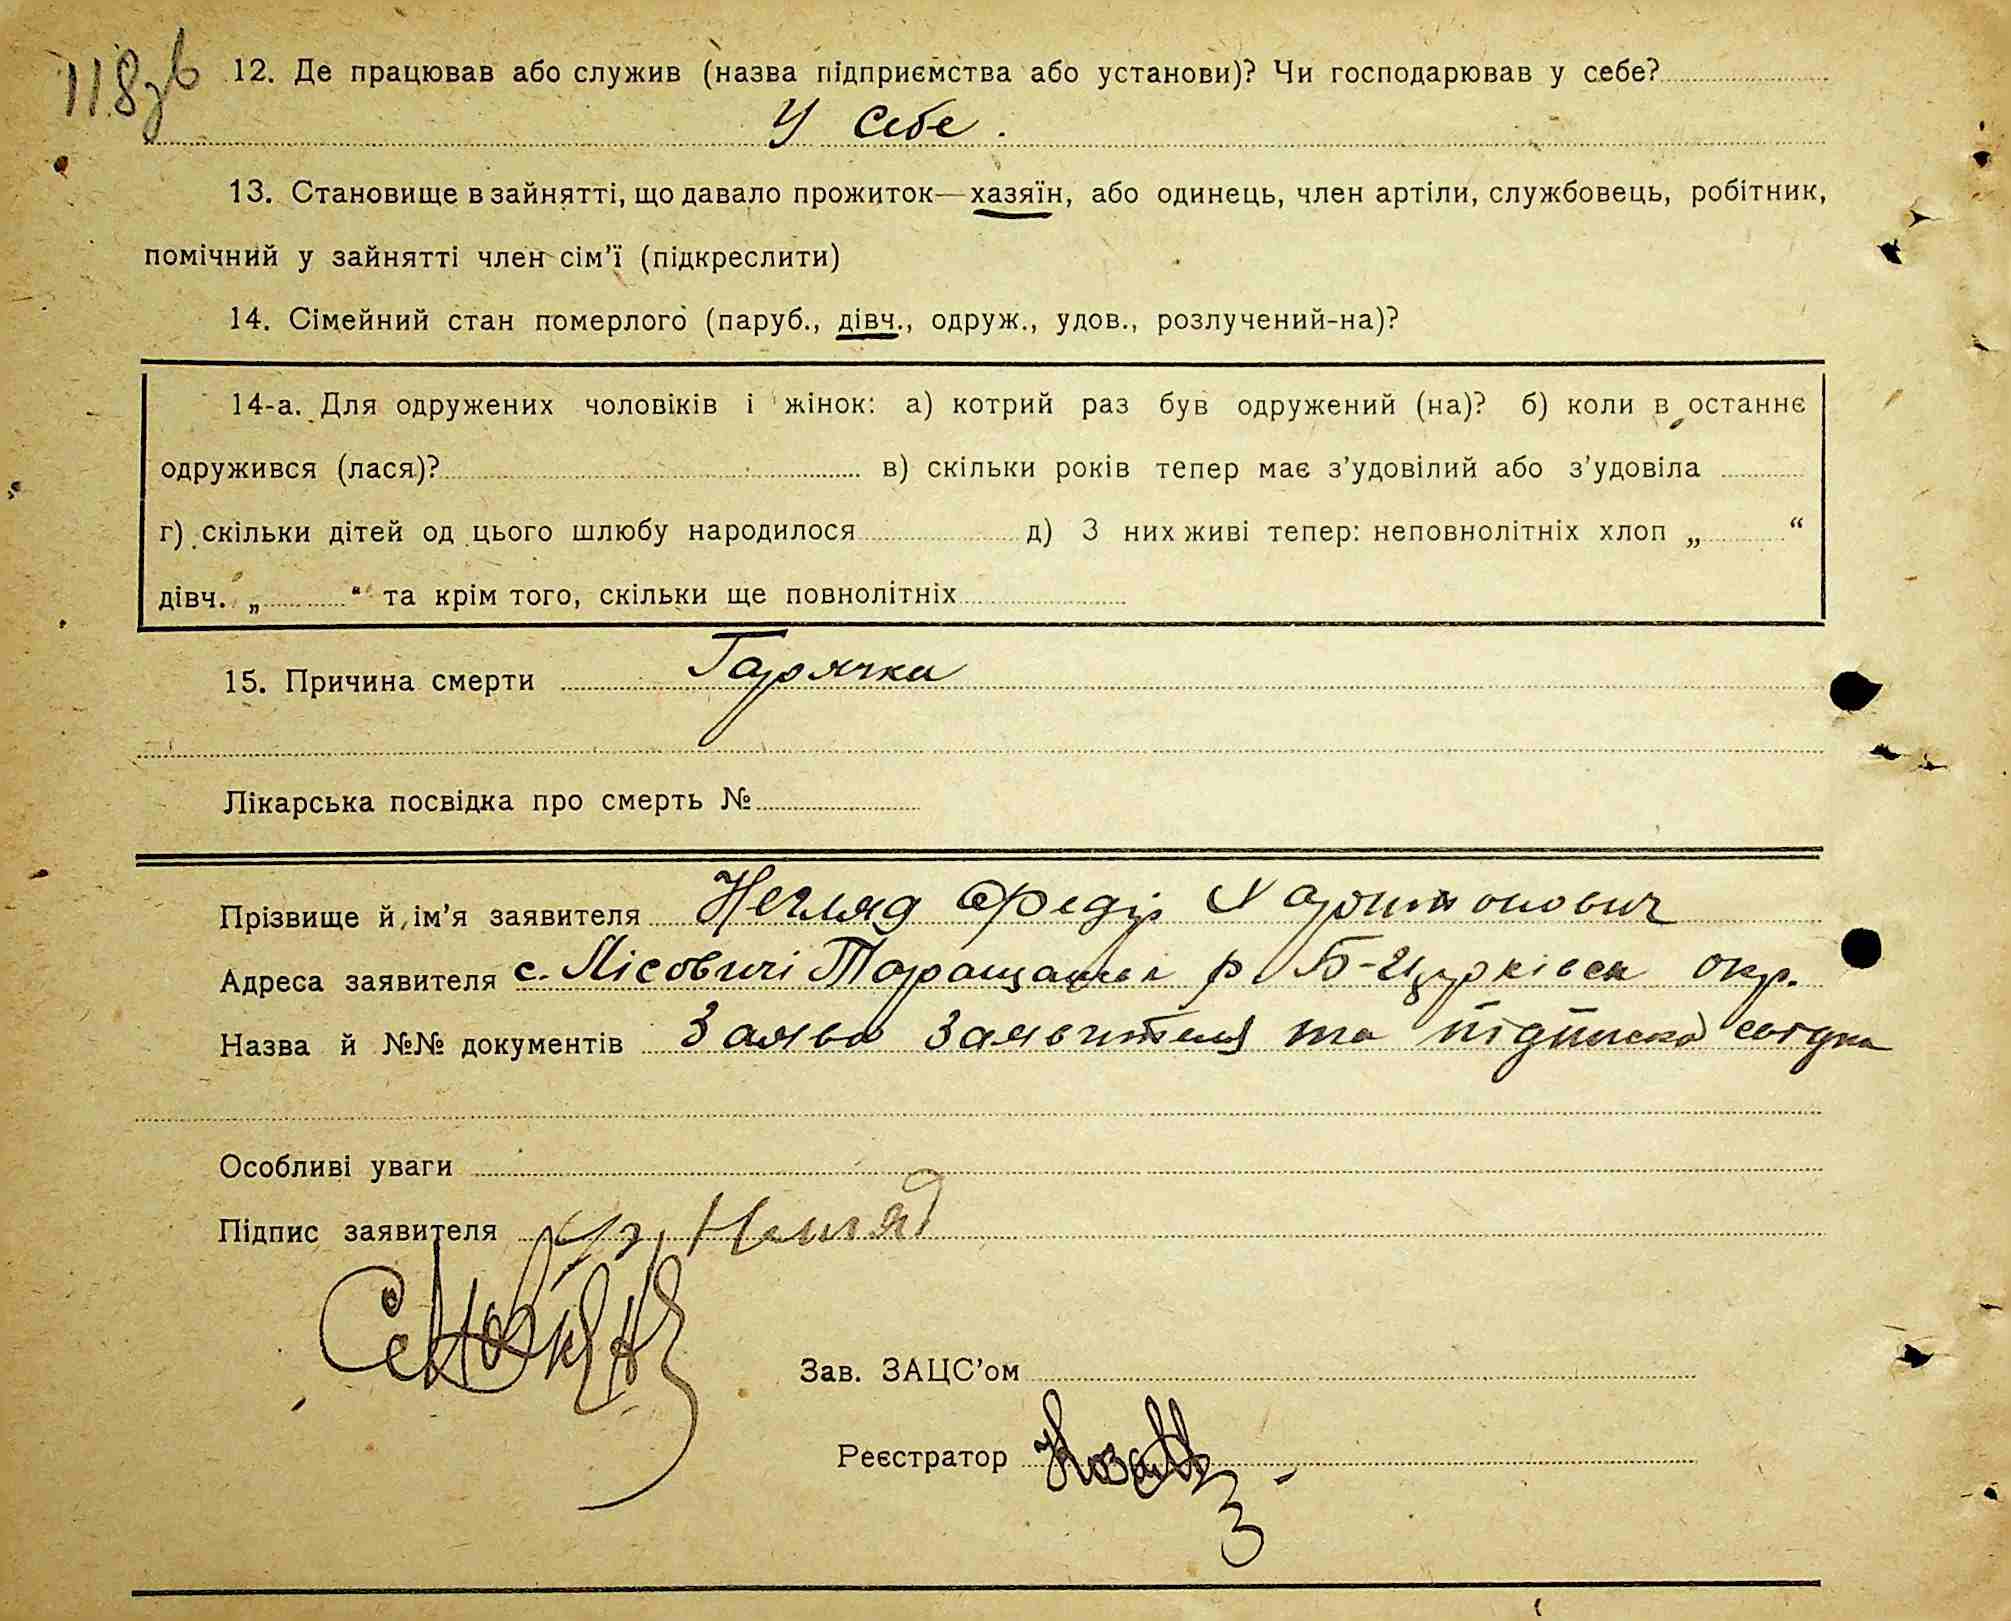 118зв
12. Де працював або служив (назва підприємства або установи)? Чи господарював у себе?
У себе.
13. Становище в зайнятті, що давало прожиток—хазяїн, або одинець, член артіли, службовець, робітник,
помічний у зайнятті член сім’ї (підкреслити)
14. Сімейний стан померлого (паруб., дівч., одруж., удов., розлучений-на)?
14-а. Для одружених чоловіків і жінок: а) котрий раз був одружений (на)? б) коли в останнє
одружився (лася)? в) скільки років тепер має з’удовілий або з’удовіла
г) скільки дітей од цього шлюбу народилося д) З них живі тепер: неповнолітніх хлоп „ “
дівч. „ “ та крім того, скільки ще повнолітніх
15. Причина смерти Гарячка
Лікарська посвідка про смерть №
Прізвище й ім’я заявителя Негляд Федір Харитонович
Адреса заявителя с. Лісовичі Таращанськ р Б-Церківськ окр.
Назва й №№ документів Заява заявителя та підписка свідка
Особливі уваги
Підпис заявителя Негляд
Зав. ЗАЦС’ом
Реєстратор